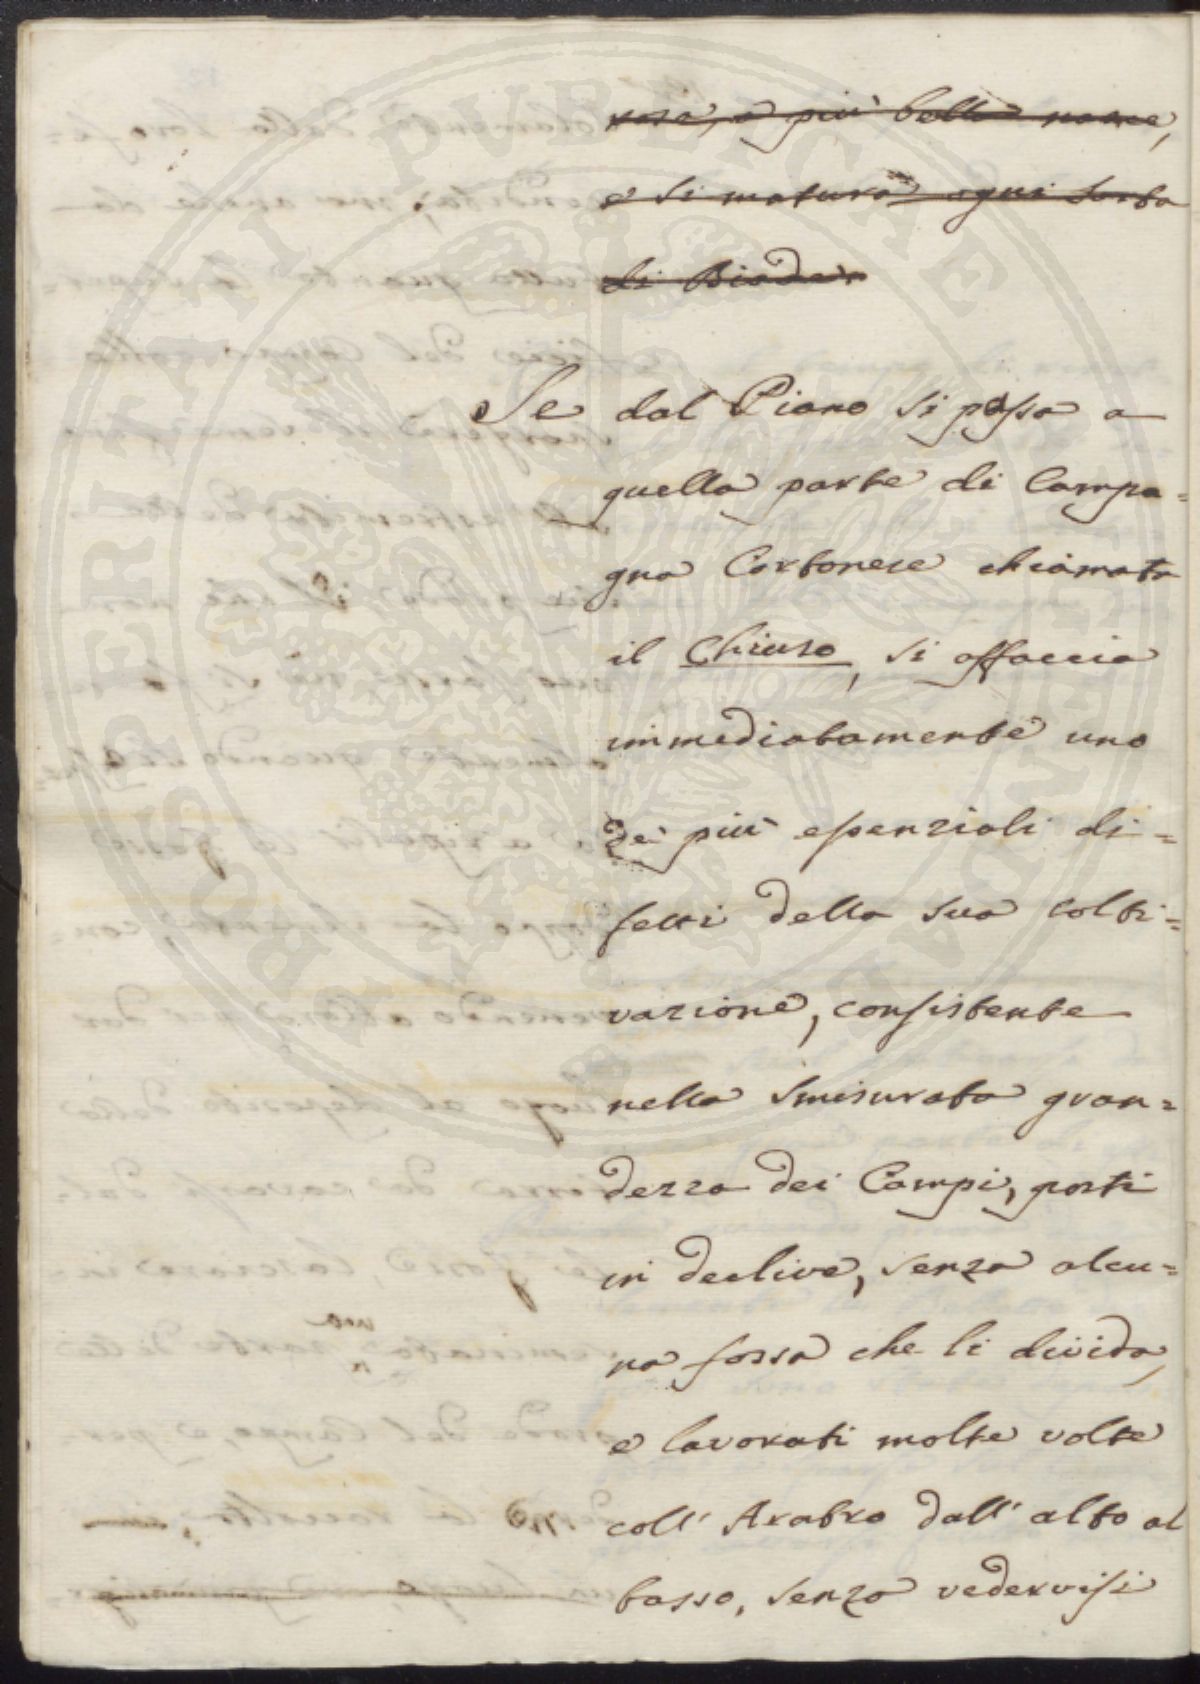 e più bella nasce,
e si matura ogni sorta
di Biade.
Se dal Piano si passa a
quella parte di Campa=
gna Cortonese chiamata
il Chiuso, si affaccia
immediatamente uno
de' più essenziali di=
fetti della sua colti=
vazione, consistente
nella smisurata gran=
dezza dei Campi, posti
in declive, senza alcu=
na fossa che li divida,
e lavorati molte volte
coll' Aratro dall' alto al
basso, senza vedervisi
PROSPERITATI PUBLICAE AUGENDAE